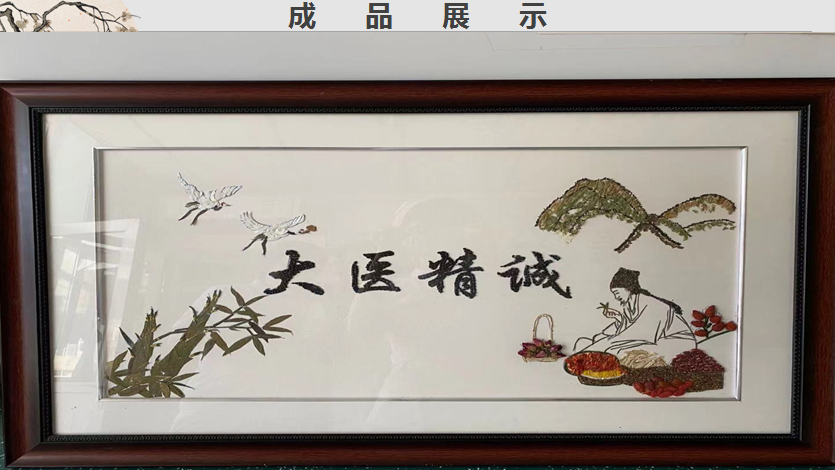 成品展示
大医精诚